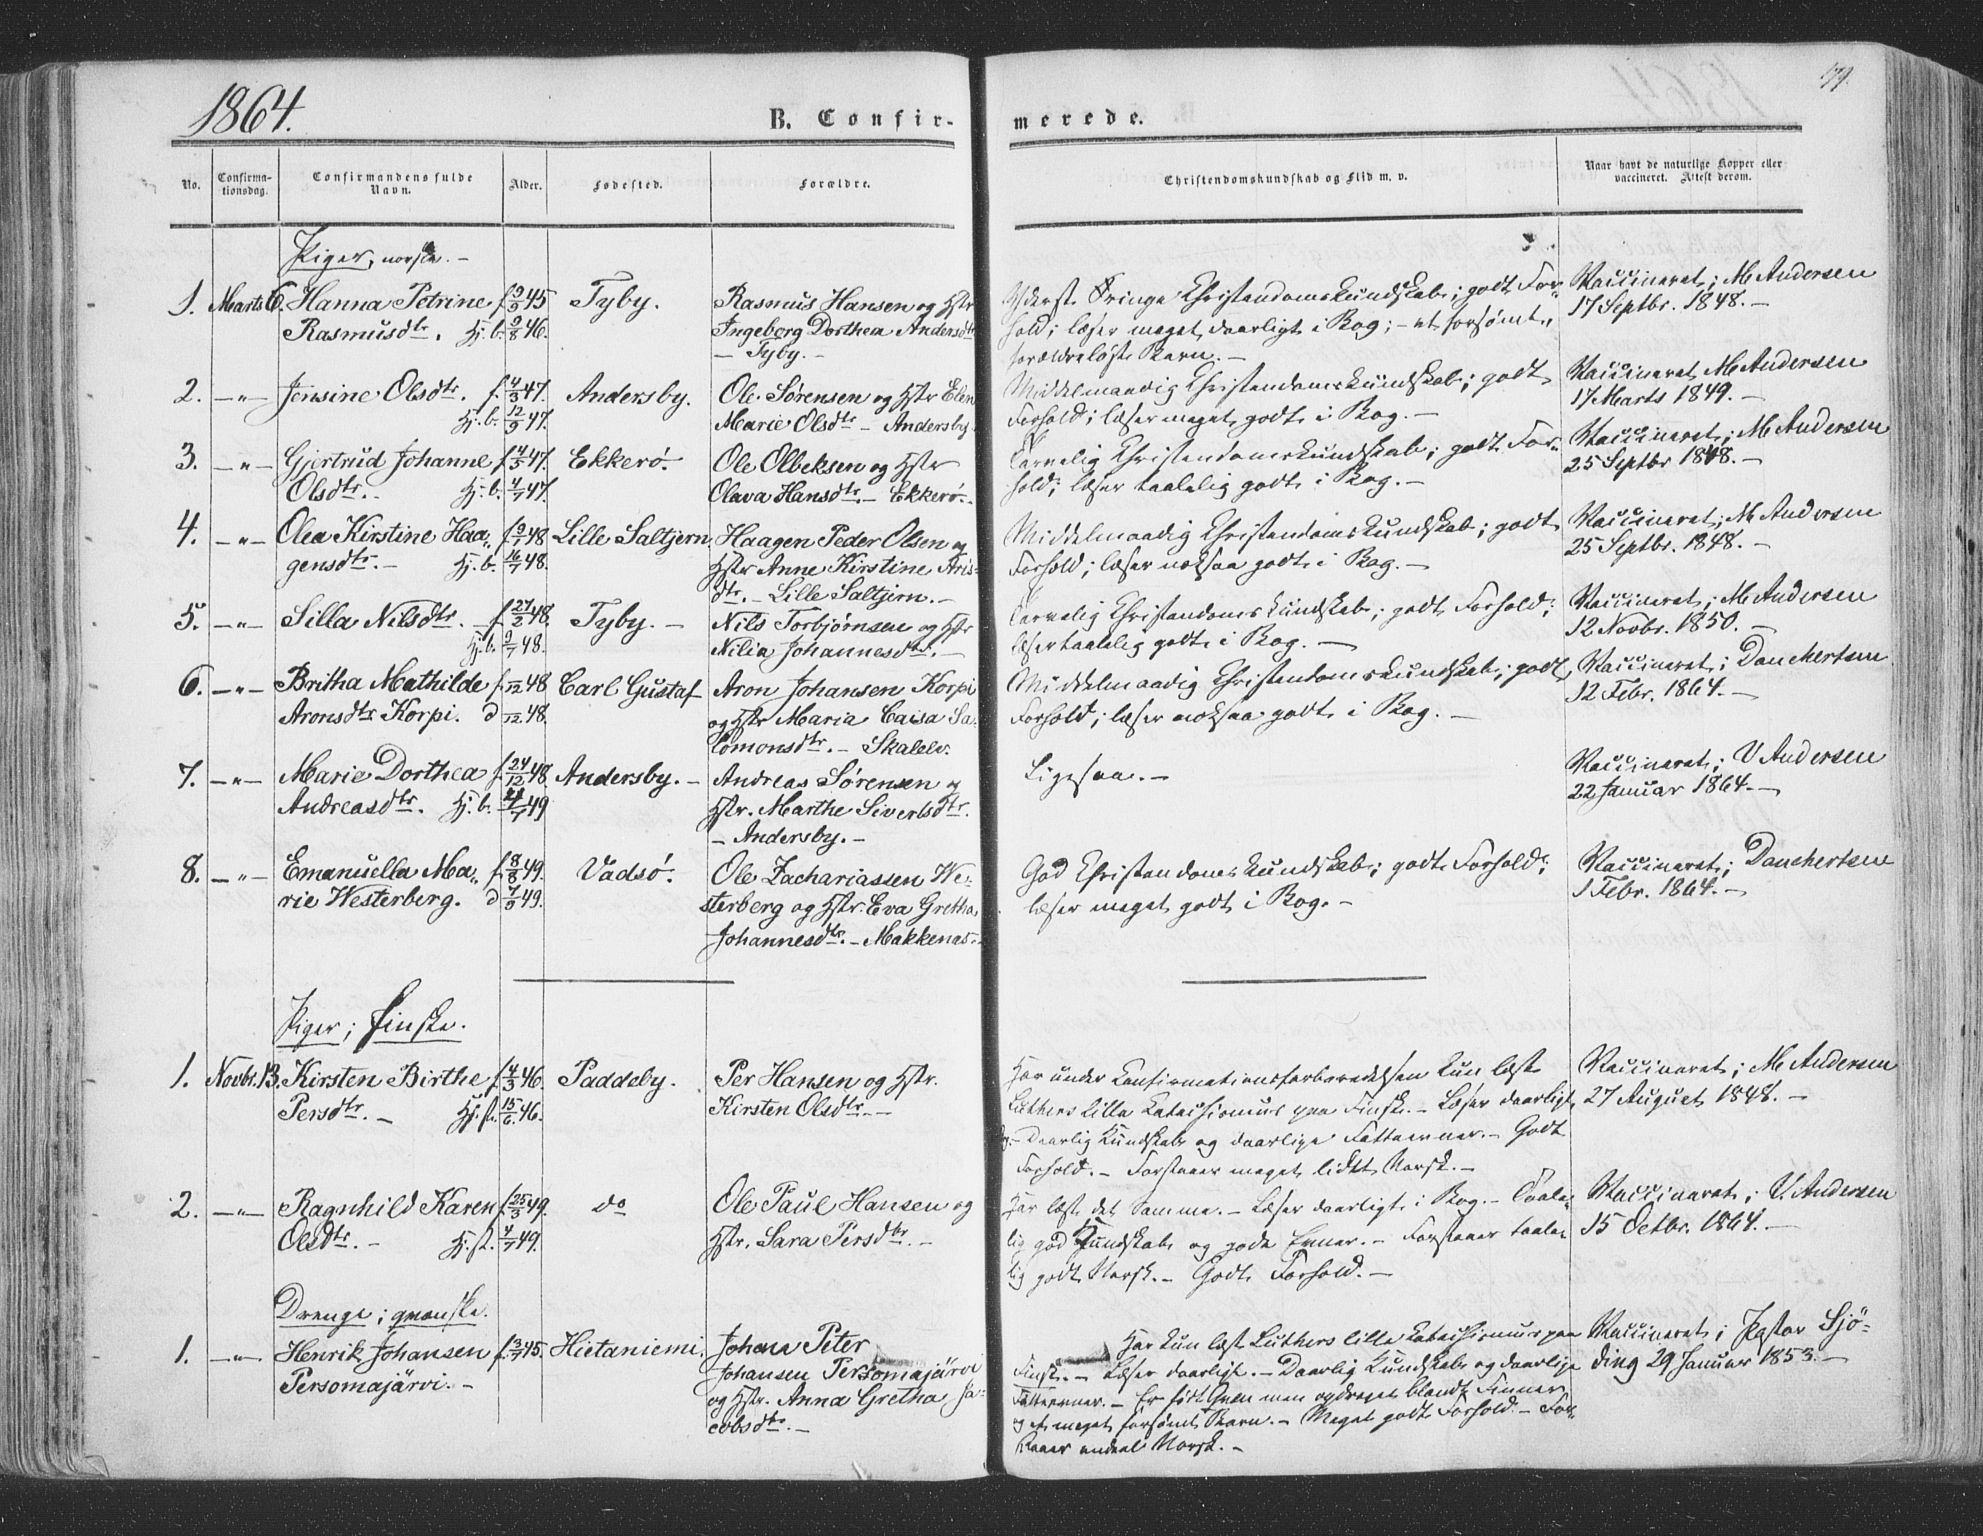 1864.
B. Confir-
merede.
179.
No.
Confirma-
tionsdag.
Confirmandens fulde
Navn.
Alder.
Fødested.
Forældre.
Christendomskundskab og Flid m. v.
Naar havt de naturlige Kopper eller
vaccineret. Attest derom.
Piger, norske. -
1. Marts 6. Hanna Petrine f. 9/9 45 Tyby. Rasmus Hansen og Hstr
Rasmusdtr. Hj. b. 9/8 46. Ingeborg Dorthea Andersdtr
- Tyby. -
Yderst Kristendomskundskab; godt For-
hold; læser meget daarligt i Bog; - et forsømt,
forældreløst Barn. -
Vaccineret; M Andersen
17 Septbr. 1848. -
2. -"- Jensine Olsdtr. f. 4/3 47. Andersby. Ole Sørensen og Hstr Elen
Hj. b. 12/5 47. Marie Olsdtr - Andersby.
Middelmaadig Christendomskundskab; godt
Forhold; læser meget godt i Bog. -
Vaccineret M Andersen
17 Marts 1849. -
3. -"- Gjertrud Johanne f. 4/5 47. Ekkerø. Ole Olbeksen og Hstr
Olsdtr. - Hj. b. 4/7 47. Olava Hansdtr. - Ekkerø. -
Tarvelig Christendomskundskab; godt For-
hold; læser taalelig godt i Bog. -
Vaccineret; M Andersen
25 Septbr 1848. -
4. -"- Olea Kirstine Haa- f. 9/1 48 Lille Saltjern Haagen Peder Olsen og
gensdtr. - Hj. b. 16/7 48. Hstr Anne Kirstine Aris-
dtr. - Lille Saltjern. -
Middelmaadig Christendomskundskab; godt
Forhold; læser noksaa godt i Bog. -
Vaccineret; M Andersen
25 Septbr. 1848. -
5. -"- Silla Nilsdtr. - f. 27/2 48. Tyby. - Nils Torbjørnsen og Hstr
Hj. b. 9/7 48. Nilia Johannesdtr. -
Tarvelig Christendomskundskab; godt Forhold;
læser taalelig godt i Bog. -
Vaccineret; M Andersen
12 Novbr. 1850. -
6. -"- Britha Mathilde f. -/12 48 Carl Gustaf Aron Johansen Korpi
Aronsdtr Korpi. d -/12 48. og Hstr Maria Caisa Sa-
lomonsdtr. - Skalelv.
Middelmaadig Christendomskundskab; godt
Forhold; læser noksaa godt i Bog. -
Vaccineret; Danchertsen
12 Febr. 1864. -
7. -"- Marie Dorthea f. 24/12 48 Andersby. - Andreas Sørensen og
Andreasdtr. Hj. b. 49 Hstr. Marthe Sivertsdtr.
- Andersby. -
Ligesaa. -
Vaccineret; V Andersen
22 Januar 1864. -
8. -"- Emanuella Ma- f. 8/8 49. Vadsø. Ole Zachariassen We-
rie Westerberg. d 7/9 49. sterberg og Hstr. Eva Gretha
Johannesdtr. - Makkenas. -
God Christendomskundskab; godt Forhold;
læser meget godt i Bog. -
Vaccineret; Danchertsen
1 Febr. 1864. -
Piger; finske.
1. Novbr. 13. Kirsten Birthe f. 4/3 46. Paddeby. Per Hansen og Hstr.
Persdtr. - Hj. st. 15/6 46. Kirsten Olsdtr. -
Har under Confirmationsforberedelsen kun læst
Luthers lille Katechismus paa Finsk. - Læser daarligt
Bog. - Daarlig Kundskab og daarlige Fatteevner. - Godt
Forhold. - Forstaaer meget lidet Norsk. -
Vaccineret; M. Andersen
27 August 1848. -
2. -"- Ragnhild Karen f. 25/3 49. do Ole Paul Hansen og
Olsdtr. - Hj. st. 4/7 49. Hstr. Sara Persdtr. -
Har læst det Samme. - Læser daarligt i Bog. - Taale-
lig god Kundskab og gode Evner. - Forstaaer taale-
lig godt Norsk. - Godt Forhold. -
Vaccineret; V. Andersen
15 Octbr. 1864. -
Drenge; qvænske.
1. -"- Henrik Johansen f. 3/7 45. Hietaniemi. Johan Peter
Persomajärvi. - Johansen Persomajärvi
og Hstr. Anna Gretha Ja-
cobsdtr. -
Har kun læst Luthers lille Katechismus paa
Finsk. - Læser daarligt. - Daarlig Kundskab og daarlige
Fatteevner. - Er født Qvæn men opdraget blandt Finner
og et meget forsømt Barn. - Meget godt Forhold. - For-
staaer endeel Norsk. -
Vaccineret; Pastor Sjö-
ding 29 Januar 1853. -